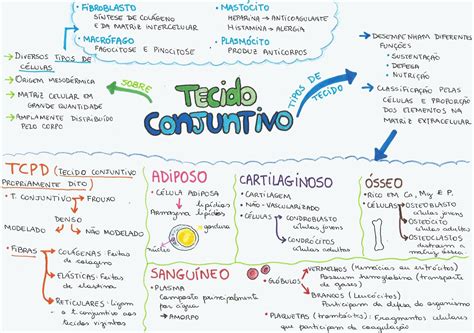 • FIBROBLASTO
SÍNTESE DE COLÁGENO
E DA MATRIZ INTERCELULAR
• MACRÓFAGO
FAGOCITOSE E PINOCITOSE
• MASTÓCITO
HEPARINA → ANTICOAGULANTE
HISTAMINA → ALERGIA
• PLASMÓCITO
PRODUZ ANTICORPOS
→ DIVERSOS TIPOS DE
CÉLULAS
→ ORIGEM MESODÉRMICA
→ MATRIZ CELULAR EM
GRANDE QUANTIDADE
→ AMPLAMENTE DISTRIBUÍDO
PELO CORPO
SOBRE
TECIDO
CONJUNTIVO
TIPOS DE
TECIDO
→ DESEMPENHAM DIFERENTES
FUNÇÕES
• SUSTENTAÇÃO
• DEFESA
• NUTRIÇÃO
→ CLASSIFICAÇÃO PELAS
CÉLULAS E PROPORÇÃO
DOS ELEMENTOS DA
MATRIZ EXTRACELULAR
TCPD (TECIDO CONJUNTIVO
PROPRIAMENTE DITO)
• T. CONJUNTIVO → FROUXO
DENSO
MODELADO NÃO MODELADO
• FIBRAS → COLÁGENAS: Feitas
de colágeno
→ ELÁSTICAS: Feitas de
elastina
→ RETICULARES: Ligam
o T. conjuntivo aos
tecidos vizinhos
ADIPOSO
• CÉLULA ADIPOSA
Armazena lipídios
lipídios
gordura
núcleo
CARTILAGINOSO
• CARTILAGEM
• NÃO-VASCULARIZADO
• CÉLULAS → CONDROBLASTO
células jovens
→ CONDRÓCITOS
células adultas
ÓSSEO
• Rico em Ca, Mg e P.
• CÉLULAS → OSTEOBLASTO
células jovens
→ OSTEÓCITO
células adultas
→ OSTEOCLASTOS
destroem a
matriz óssea
SANGUÍNEO
• PLASMA
Composto principalmente
por água
→ AMORFO
• GLÓBULOS
→ VERMELHOS (hemácias ou eritrócitos)
Possuem hemoglobina
→ BRANCOS (leucócitos)
Participam da defesa do organismo
• PLAQUETAS (trombócitos): Fragmentos celulares
que participam da coagulação